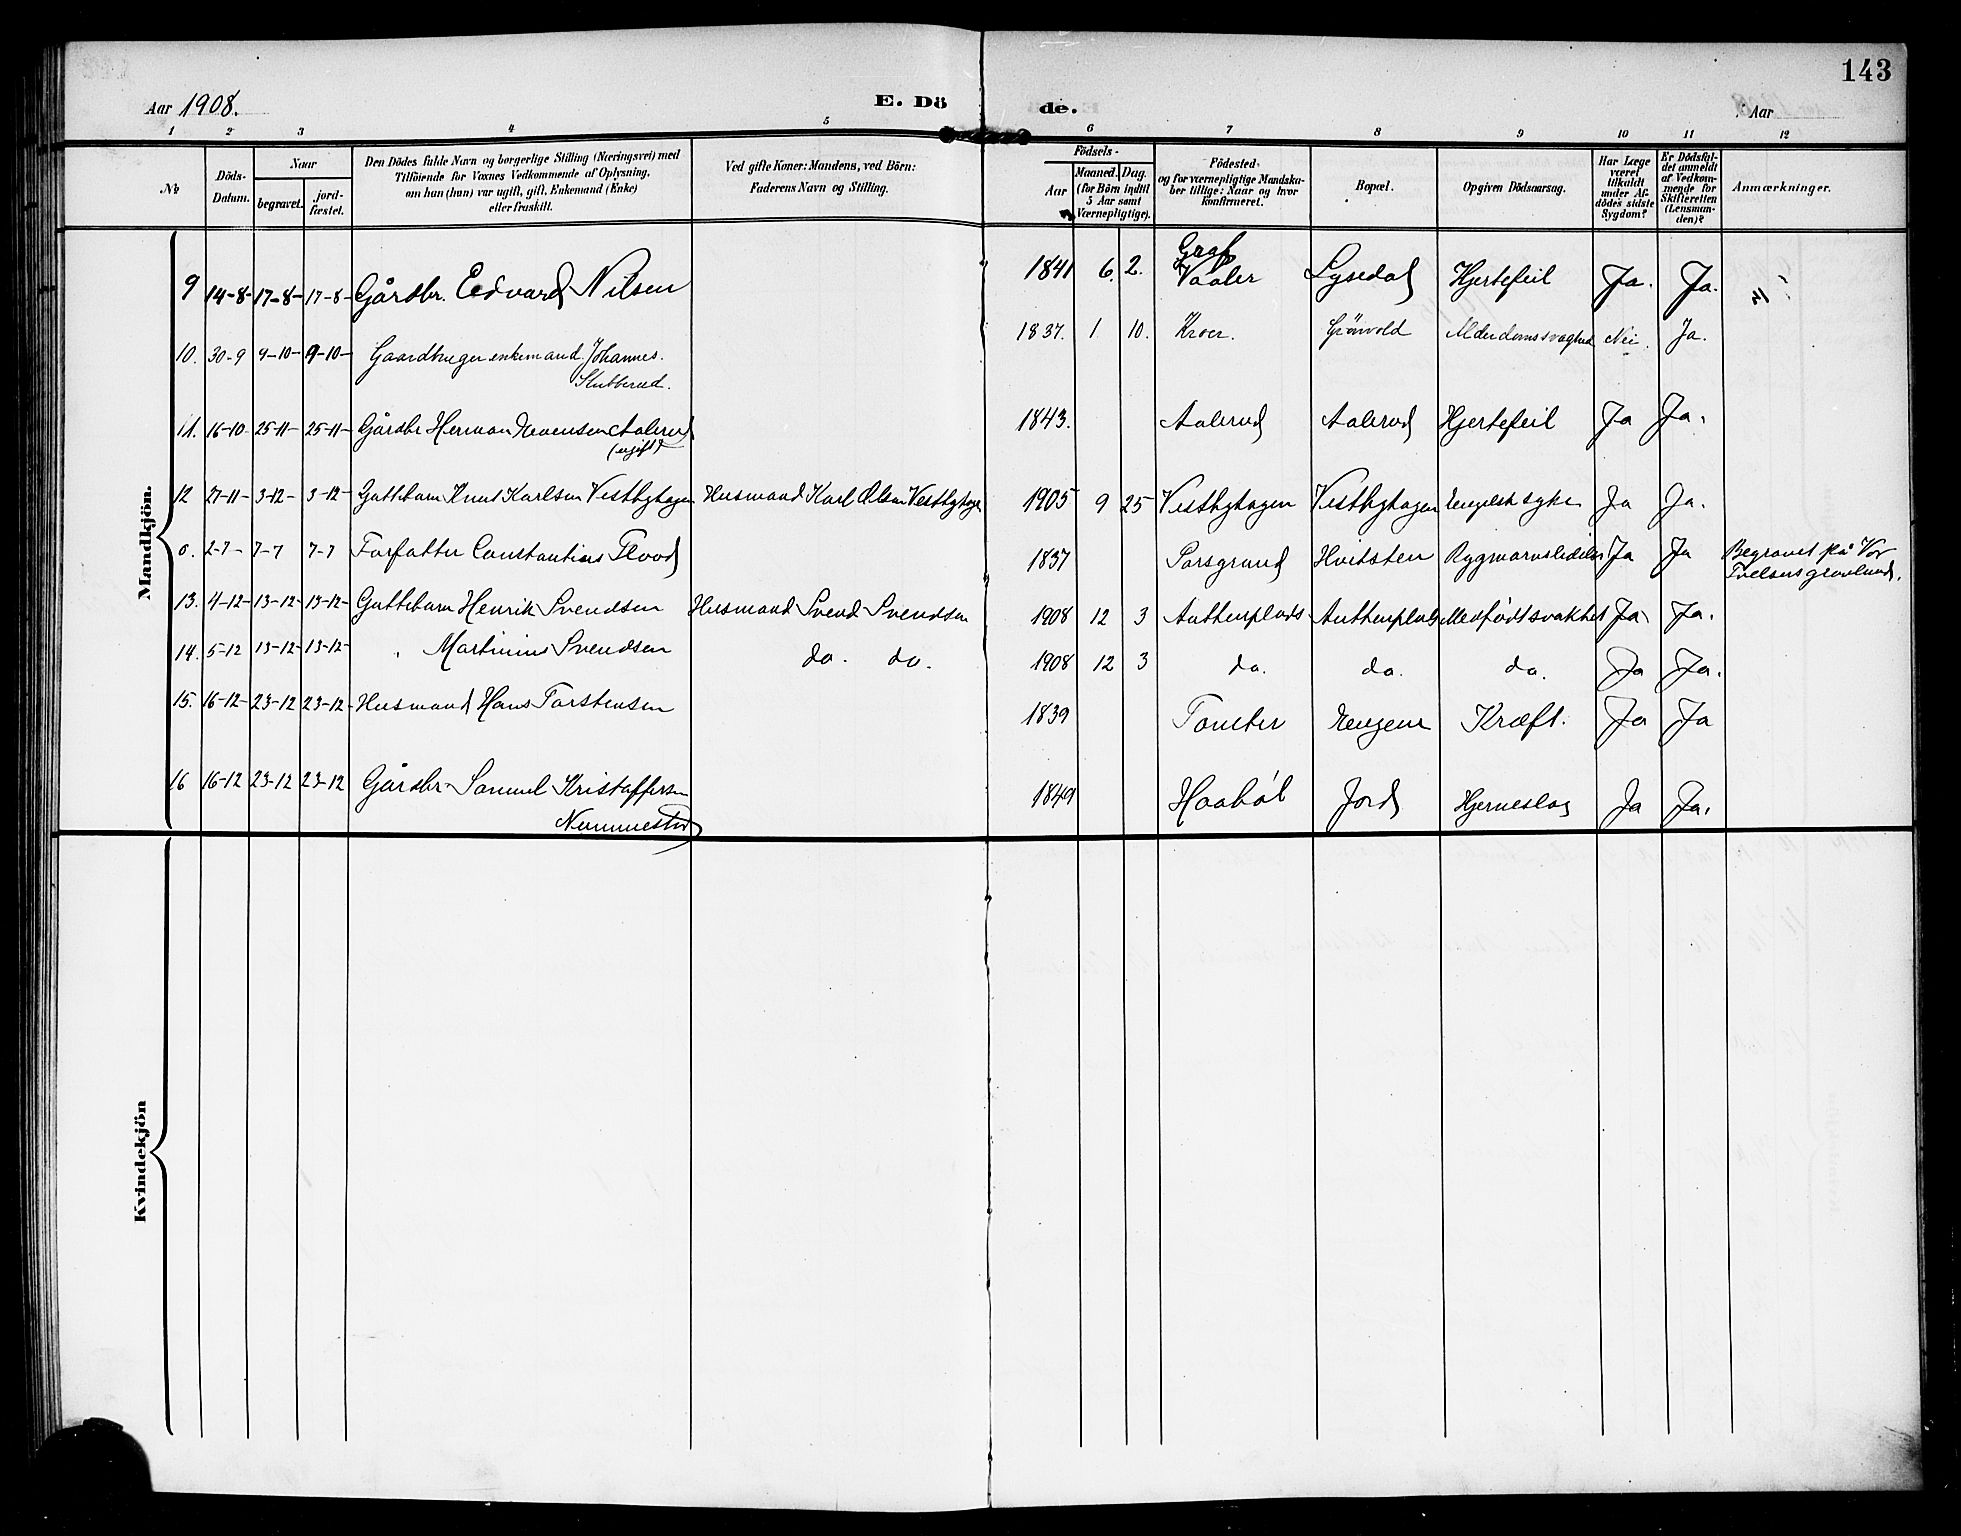 143
Aar 1908.
E. Döde.
Aar
1 2 3 4 5 6 7 8 9 10 11 12
No
Döds-Datum.
Naar
begravet.
jord-fæstet.
Den Dödes fulde Navn og borgerlige Stilling (Næringsvei) med
Tilföiende for Voxnes Vedkommende af Oplysning,
om han (hun) var ugift, gift, Enkemand (Enke)
eller fraskilt.
Ved gifte Koner: Mandens, ved Börn:
Faderens Navn og Stilling.
Födsels-
Aar
Maaned. Dag.
(for Börn indtil
5 Aar samt
Værnepligtige).
Födested
og for værnepligtige Mandska-
ber tillige: Naar og hvor
konfirmeret.
Bopæl.
Opgiven Dödsaarsag.
Har Læge
været
tilkaldt
under Af-
dödes sidste
Sygdom?
Er Dödsfal-
det anmeldt
af Vedkom-
mende for
Skifteretten
(Lensman-
den)?
Anmærkninger.
Mandkjön.
9 14-8- 17-8- 17-8- Gårdbr. Edvard Nilsen 1841 6. 2. Vaaler Lysedal Hjertefeil Ja. Ja.
10. 30-9 9-10- 9-10- Gaardbruger enkemand Johannes
Slubberud. 1837. 1 10. Kroer. Grönvold Alderdomssvaghed Nei. Ja.
11. 16-10 25-11- 25-11- Gårdbr Herman Evensen Aalerud
(ugift) 1843. Aalerud Aalerud Hjertefeil Ja Ja.
12 27-11- 3-12- 3-12- Guttebarn Knut Karlsen Vestbyhagen Husmand Karl Olsen Vestbyhagen 1905 9 25 Vestbyhagen Vestbyhagen Engelsk syke Ja Ja.
0. 2-7- 7-7 7-7 Forfatter Constantius Flood 1837 Porsgrund Hvitsten Rygmarvslidelse Ja Ja Begravet på Vor
Frelsers gravlund.
13. 4-12- 13-12- 13-12- Guttebarn Henrik Svendsen Husmand Svend Svendsen 1908 12 3 Authenplads Authenplads Medfödt svakhet Ja Ja.
14. 5-12 13-12- 13-12- " Martinius Svendsen do. do. 1908 12 3 do. do. do. Ja Ja.
15. 16-12- 23-12 23-12- Husmand Hans Torstensen 1839 Tomter Engene Kræft. Ja Ja
16 16-12 23-12 23-12 Gårdbr. Samuel Kristoffersen
Nummestad 1849 Haaböl Jord Hjerneslag Ja Ja.
Kvindekjön